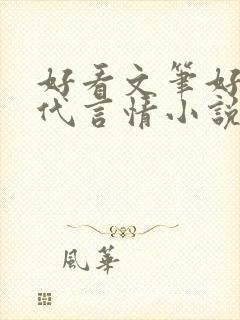 好看文筆好
代言情小說
風華